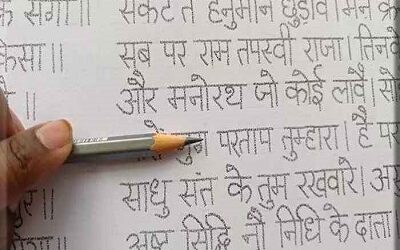 संगा।। संकट ते हनुमान छुड़ावै। मन
केसा।। सब पर राम तपस्वी राजा। तिनके
।। और मनोरथ जो कोई लावै।
परताप तुम्हारा। है पर
।। साधु संत के तुम रखवारे।
अष्ट सिद्धि नौ निधि के दाता।